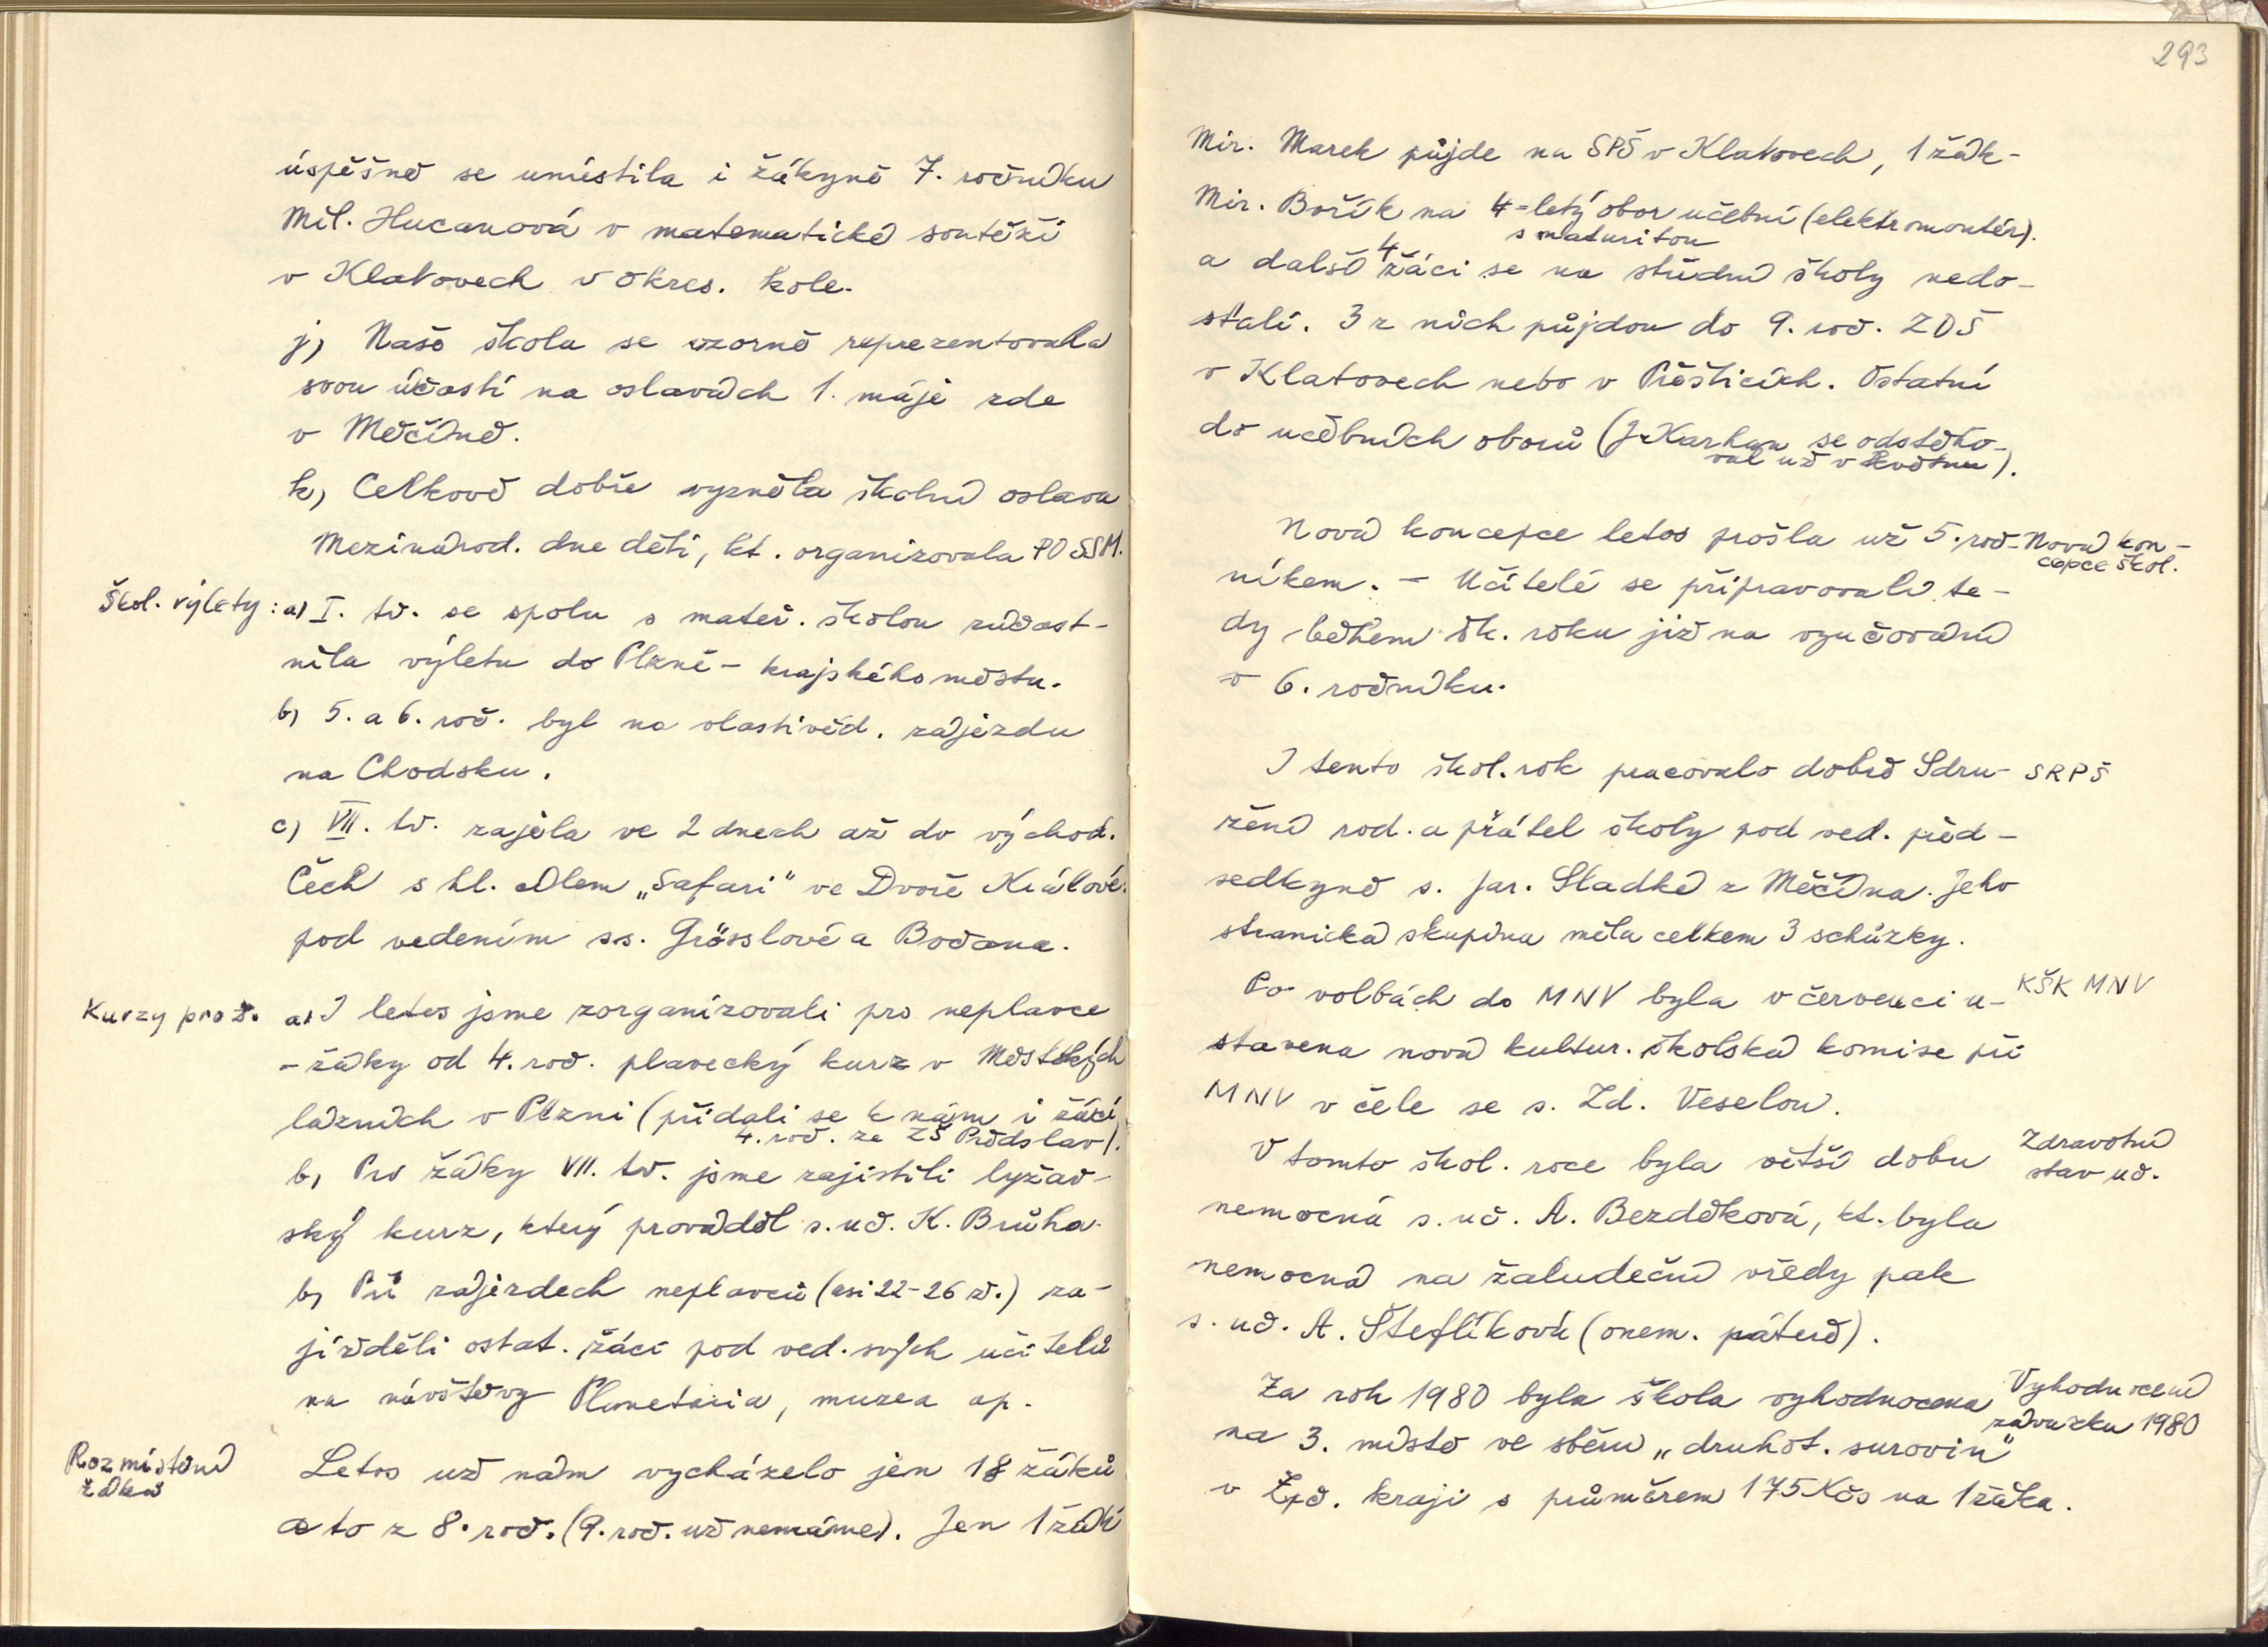 úspěšně se umístila i žákyně 7. ročníku
Mil. Hucanová v matematické soutěži
v Klatovech v okres. kole.
j) Naše škola se vzorně reprezentovala
svou účastí na oslavách 1. máje zde
v Měčíně.
k) Celkově dobře vyzněla školní oslava
Mezinárod. dne dětí, kt. organizovala PO SSM.
Škol. výlety: a) I. tř. se spolu s mateř. školou zúčast-
nila výletu do Plzně - krajského města.
b) 5. a 6. roč. byl na vlastivěd. zájezdu
na Chodsku.
c) VII. tř. zajela ve 2 dnech až do východ.
Čech s hl. cílem „Safari" ve Dvoře Králové
pod vedením ss. Grösslové a Bočana.
Kurzy pro ž. a) I letos jsme zorganizovali pro neplavce
- žáky od 4. roč. plavecký kurz v Městských
lázních v Plzni (přidali se k nám i žáci
4. roč. ze ZŠ Předslav).
b) Pro žáky VII. tř. jsme zajistili lyžař-
ský kurz, který prováděl s. uč. K. Brůha.
b) Při zájezdech neplavců (asi 22-26 ž.) za-
jížděli ostat. žáci pod ved. svých učitelů
na návštěvy Planetária, muzea ap.
Rozmístění
žáků
Letos už nám vycházelo jen 18 žáků
a to z 8. roč. (9. roč. už nemáme). Jen 1 žák
293
Mir. Marek půjde na SPŠ v Klatovech, 1 žák-
Mir. Bořík na 4-letý obor učební (elektromontér).
s maturitou
a další 4 žáci se na střední školy nedo-
stali. 3 z nich půjdou do 9. roč. ZDŠ
v Klatovech nebo v Přešticích. Ostatní
do učebních oborů (J. Karhan se odstěho-
val už v květnu).
Nová koncepce letos prošla už 5. roč-
níkem. - Učitelé se připravovali te-
dy během šk. roku již na vyučování
v 6. ročníku.
Nová kon-
cepce škol.
I tento škol. rok pracovalo dobře Sdru-
SRPŠ
žení rod. a přátel školy pod ved. před-
sedkyně s. Jar. Sladké z Měčína. Jeho
stranická skupina měla celkem 3 schůzky.
Po volbách do MNV byla v červenci u-
KŠK MNV
stavena nová kultur. školská komise při
MNV v čele se s. Zd. Veselou.
V tomto škol. roce byla větší dobu
Zdravotní
stav uč.
nemocná s. uč. A. Bezděková, kt. byla
nemocná na žaludeční vředy pak
s. uč. A. Šteflíková (onem. páteře).
Za rok 1980 byla škola vyhodnocena
Vyhodnocení
závazku 1980
na 3. místě ve sběru „druhot. surovin"
v Zpč. kraji s průměrem 175 Kčs na 1 žáka.